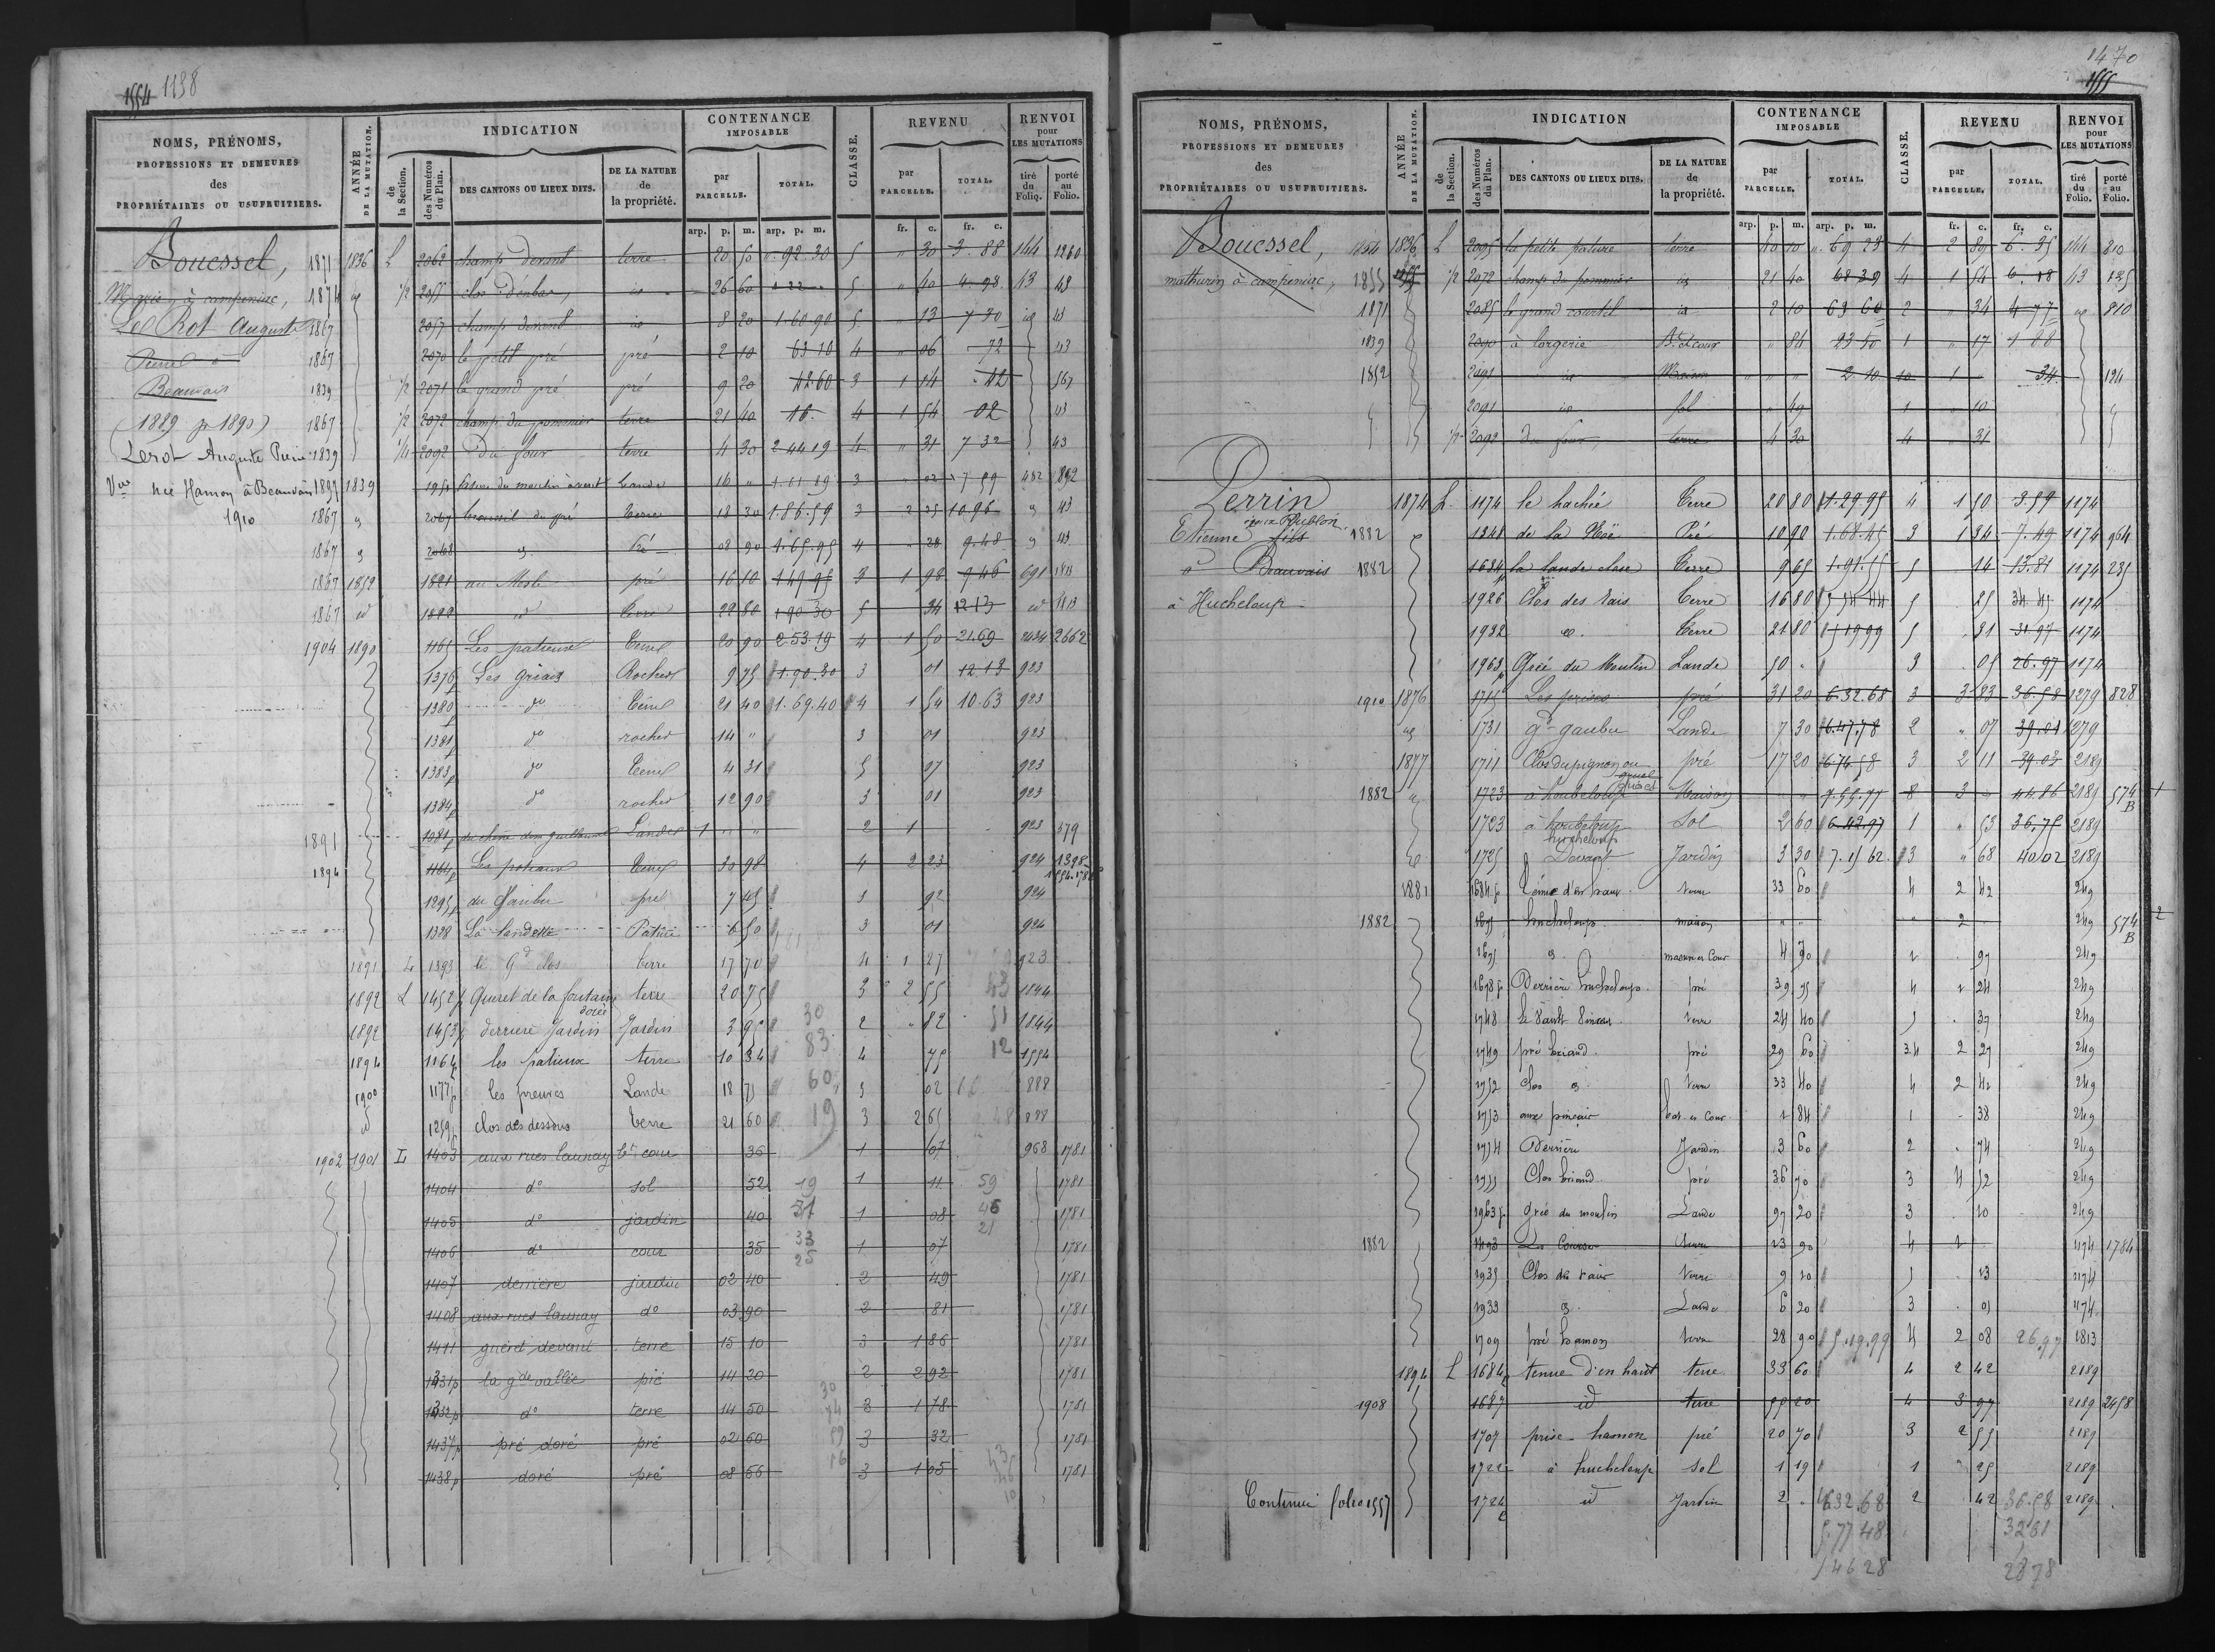 1554 1198
NOMS, PRÉNOMS, PROFESSIONS ET DEMEURES des PROPRIÉTAIRES OU USUFRUITIERS.
ANNÉE DE LA MUTATION.
INDICATION
de la Section.
des Numéros du Plan.
DES CANTONS OU LIEUX DITS.
DE LA NATURE de la propriété.
CONTENANCE IMPOSABLE
par PARCELLE.
TOTAL.
CLASSE.
REVENU
par PARCELLE.
TOTAL.
RENVOI pour LES MUTATIONS
tiré du Folio.
porté au Folio.
arp. p. m. arp. p. m. fr. c. fr. c.
Bouessel, 1871 1836 L 2062 champ devant terre 20 50 92.30 5 " 30 3.88 144 1260
Marie, à campeniac, 1874 id 1/2 2055 26 60 5 " 40 4.98 43 43
Le Rot Auguste 1867 2057 champ devant id 8 20 1.60.90 5 " 13 7 30 id 43
Pierre à 1867 2070 le petit pré pré 2 10 63 10 4 " 06 72 43
Beauvais 1839 1/2 2071 le grand pré pré 9 20 42 60 3 1 14 42 567
(1889 pr 1890) 1867 1/2 2072 champ du pommier terre 21 40 18. 4 1 54 02 43
Lerot Auguste Pierre 1839 1/4 2092 Du four terre 4 30 2 44 19 4 " 31 7 32 43
Vve née Hamon à Beauvais 1895 1839 Lande 16 " 1.11.19 3 " 02 7 59 452 892
1910 1867 " 2067 du pré terre 18 30 1.86.59 3 2 25 10.96 " 43
1867 " 2068 " Pré 08 90 1.65.95 4 " 28 9.48 " 43
1867 1852 1821 au Mesle pré 16 10 1 49 95 3 1 98 9 46 691 1813
1867 id 1822 id terre 22 80 1 90 30 5 34 12 13 id 1813
1904 1890 1165 Les patieux Terre 20 90 2 53.19 4 1 50 21.69 2434 2662
1376 Les griais Rocher 9 75 1.90.30 3 01 12 13 923
1380 do Terre 21 40 1.69.40 4 1 54 10.63 923
1381 do rocher 14 " 3 01 923
1383p do Terre 4 31 5 07 923
1384p do rocher 12 90 3 01 923
1891 1381p Landes 1 " " 2 1 923 379
1894 1164p Les patieux Terre 30 98 4 2 23 924 1398
1295p du Gaubu pré 7 45 3 92 924
1328 La landelle Pature 6 50 3 01 924
1891 L 1393 le Gd clos terre 17 70 4 1 27 923
1892 L 1452p Gueret de la fontaine dorée terre 20 75 3 2 55 1844
1892 1453p derriere Jardin Jardin 3 95 2 " 82 1844
1894 1164p les patieux terre 10 34 4 75 1554
1900 1177p les preuves Lande 18 75 3 02 888
id 1259p clos des dessous terre 21 60 3 2 65 888
1902 1901 L 1403 aux rues launay bt cour 36 1 07 968 1781
1404 do sol 52 1 11 1781
1405 do jardin 40 1 08 1781
1406 do cour 35 1 07 1781
1407 derrière jardin 02 40 2 49 1781
1408 aux rues launay do 03 90 2 81 1781
1411 guéret devant terre 15 10 3 1 86 1781
1431p la gde vallée pré 14 20 2 2 92 1781
1432p do terre 14 50 3 1 78 1781
1437p pré doré pré 02 60 3 32 1781
1438p doré pré 08 56 3 1 05 1781
1470
1555
NOMS, PRÉNOMS, PROFESSIONS ET DEMEURES des PROPRIÉTAIRES OU USUFRUITIERS.
ANNÉE DE LA MUTATION.
INDICATION
de la Section.
des Numéros du Plan.
DES CANTONS OU LIEUX DITS.
DE LA NATURE de la propriété.
CONTENANCE IMPOSABLE
par PARCELLE.
TOTAL.
CLASSE.
REVENU
par PARCELLE.
TOTAL.
RENVOI pour LES MUTATIONS
tiré du Folio.
porté au Folio.
arp. p. m. arp. p. m. fr. c. fr. c.
Bouessel, 1836 L 2095 la petite pature terre 40 10 69 29 4 2 89 6.35 144 810
mathurin à campeniac, 1855 1/2 2072 champ du pommier id 21 40 68 39 4 1 54 6.18 43 125
1871 2085 le grand courtil id 2 10 63 60 2 " 34 4 77 id 810
1839 2090 à lorgerie Bt et cour " 84 23 50 1 " 17 1 88
1852 2091 id Maison " " " 2.10 10 1 " 34 124
2091 id sol " 49 1 " 10
1/2 2092 Du four terre 4 30 4 31
Perrin 1874 L. 1174 le hachée Terre 20 80 1.29.95 4 1 50 3.59 1174
Etienne fils 1882 1348 de la Noë Pré 10 90 1.68.45 3 1 34 7.49 1174 964
à Beauvais 1882 1634p la lande close Terre 9 65 1.91.55 5 14 13.81 1174 235
à Hucheloup 1926 Clos des rais Terre 16 80 5 54 44 5 25 34 45 1174
1932 id. Terre 21 80 5 19 99 5 " 31 31.97 1174
1963p Gréé du Moulin Lande 50 " 3 " 05 26.97 1174
1910 1876 1715 Les prises pré 31 20 6.32.68 3 3 83 36.58 1279 828
id 1731 gd gaubu Lande 7 30 6.47.78 2 " 07 39.01 1279
1877 1711 Clos du pignon ou pré 17 20 6 74 58 3 2 11 39.03 2189
1882 " 1723 à hucheloup Maison " " 7.55.77 8 3 " 44.86 2189 574 B 1
1723 à hucheloup Sol 2 60 6.42.97 1 " 53 36.75 2189
id 1725 Devant Jardin 3 30 7.15 62 3 " 68 40 02 2189
1881 1684p terre 33 60 4 2 42 249
1882 1695 hucheloup maison " " " 2 249 574 B 2
1695 " maison et Cour 4 70 1 97 249
1698p Derrière hucheloup pré 39 95 4 1 24 249
1748 terre 24 40 5 . 37 249
1749 pré briand pré 29 60 3.4 2 27 249
1752 clos " terre 33 40 4 2 41 249
1753 bat. et Cour 1 84 1 38 249
1754 Derrière Jardin 3 60 2 74 249
1755 Clos briand pré 36 70 3 4 52 249
1963p gréé du moulin Lande 97 20 3 10 249
1882 1193 Les Courses terre 13 90 4 1 1174 1784
1935 Clos des raix terre 9 10 5 13 1174
1933 " Lande 6 20 3 . 01 1174
1709 pré hamon terre 28 90 5.19.99 4 2 08 26.97 1813
1894 L 1684p tenue d'en haut terre 33 60 4 2 42 2189
1908 1687 id terre 55 20 4 3 97 2189 2458
1707 prise hamon pré 20 70 3 2 55 2189
1722 à hucheloup Sol 1 19 1 " 25 2189
Continué folio 1557 1724 id Jardin 2 " 632.68 2 42 36.58 2189
5.77 48 32 61
5 46 28 28 78